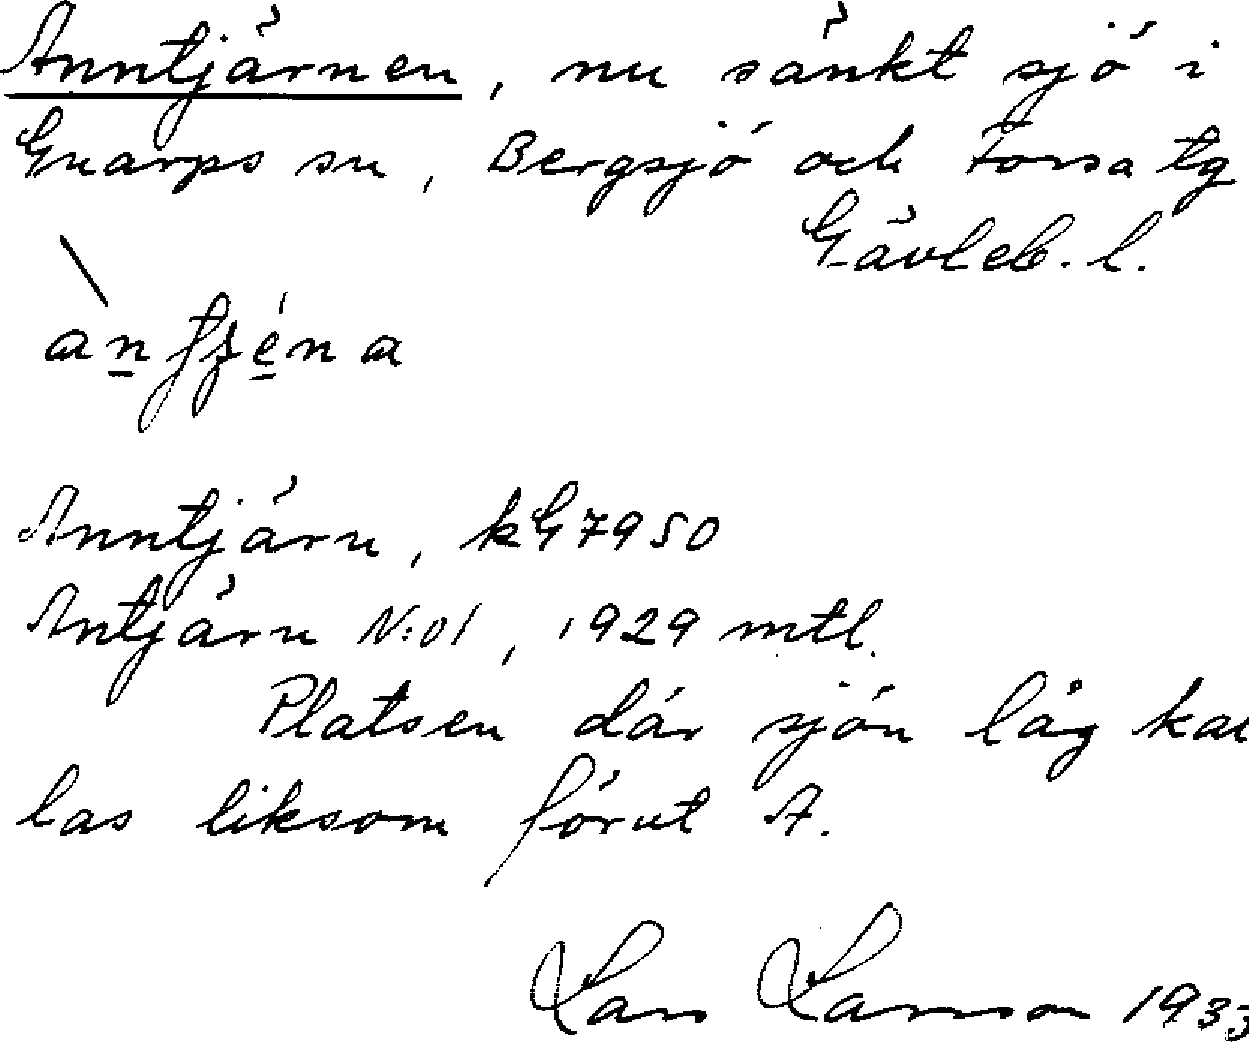 Anntjärnen, nu sänkt sjö i
Gnarps sn, Bergsjö och Forsa tg
Gävleb. l.
Anntjärn, kG7950
Antjärn N:o1, 1929 mtl.
Platsen där sjön låg kal
las liksom förut A.
Lars Larsson 1933